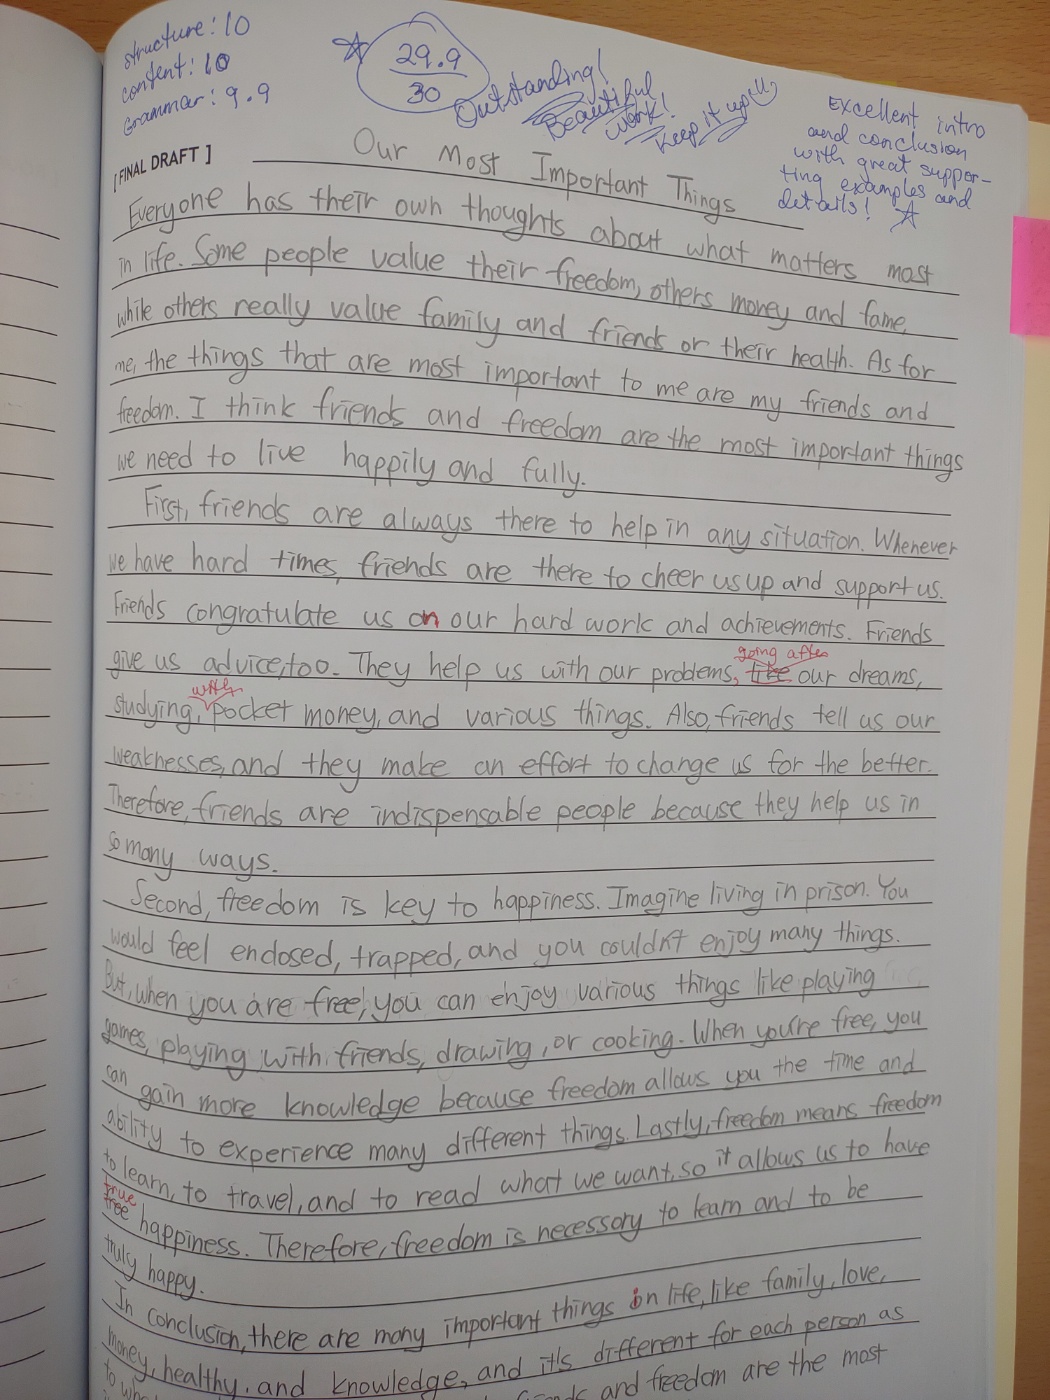 structure: 10
content: 10
Grammar: 9.9
29.9
30
Outstanding!
Beautiful
work!
Keep it up
Excellent intro
and conclusion
with great suppor-
ting examples and
details!
[FINAL DRAFT]
Our Most Important Things
Everyone has their own thoughts about what matters most
in life. Some people value their freedom, others money and fame,
while others really value family and friends or their health. As for
me, the things that are most important to me are my friends and
freedom. I think friends and freedom are the most important things
we need to live happily and fully.
First, friends are always there to help in any situation. Whenever
we have hard times, friends are there to cheer us up and support us.
Friends congratulate us on our hard work and achievements. Friends
give us advice, too. They help us with our problems, going after our dreams,
studying, with pocket money, and various things. Also, friends tell us our
weaknesses, and they make an effort to change us for the better.
Therefore, friends are indispensable people because they help us in
so many ways.
Second, freedom is key to happiness. Imagine living in prison. You
would feel enclosed, trapped, and you couldn't enjoy many things.
But, when you are free, you can enjoy various things like playing
games, playing with friends, drawing, or cooking. When you're free, you
can gain more knowledge because freedom allows you the time and
ability to experience many different things. Lastly, freedom means freedom
to learn, to travel, and to read what we want, so it allows us to have
true happiness. Therefore, freedom is necessary to learn and to be
truly happy.
In conclusion, there are many important things in life, like family, love,
money, healthy, and knowledge, and it's different for each person as
to and freedom are the most